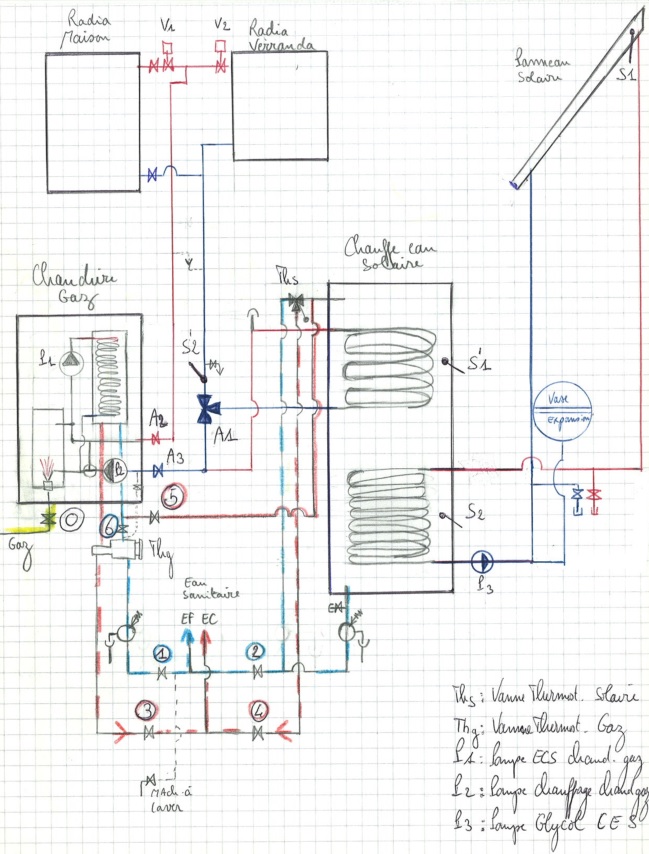 Radia
Maison
V1
V2
Radia
Verranda
Panneau
Solaire
S1
Chaudière
Gaz
Chauffe eau
Solaire
Ths
P1
S'2
S'1
A2
A1
A3
P2
Vase
expansion
5
S2
0
6
Gaz
Thg
P3
Eau
Sanitaire
EF EC
1
2
3
4
MAch à
Laver
Ths : Vanne Thermost. Solaire
Thg : Vanne Thermost. Gaz
P1 : Pompe ECS chaud. gaz
P2 : Pompe chauffage chaud gaz
P3 : Pompe Glycol C E S